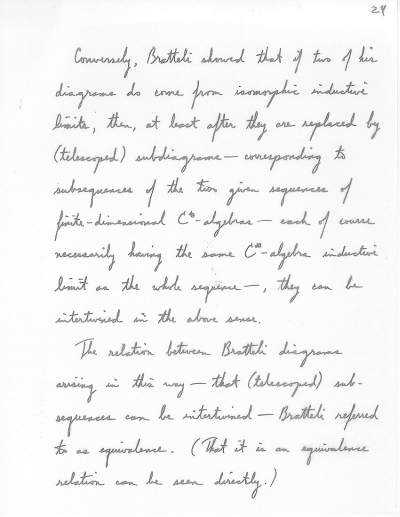 24
Conversely, Bratteli showed that if two of his
diagrams do come from isomorphic inductive
limits, then, at least after they are replaced by
(telescoped) subdiagrams — corresponding to
subsequences of the two given sequences of
finite-dimensional C*-algebras — each of course
necessarily having the same C*-algebra inductive
limit as the whole sequence —, they can be
intertwined in the above sense.
The relation between Bratteli diagrams
arising in this way — that (telescoped) sub-
sequences can be intertwined — Bratteli referred
to as equivalence. (That it is an equivalence
relation can be seen directly.)